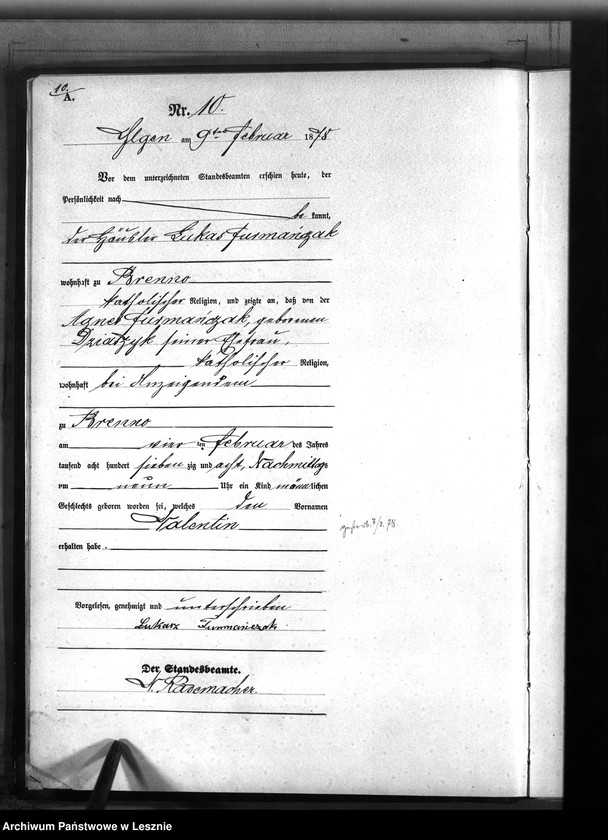 10.
A.
Nr. 10.
Ilgen am 9ten Februar 1878
Vor dem unterzeichneten Standesbeamten erschien heute, der
Persönlichkeit nach
be kannt,
der Häusler Lukas Furmańczak
wohnhaft zu Brenno
katholischer Religion, und zeigte an, daß von der
Agnes Furmańczak, geborenen
Dziaszyk seiner Ehefrau,
katholischer Religion,
wohnhaft bei Anzeigendem
zu Brenno
am vier ten Februar des Jahres
tausend acht hundert sieben zig und acht, Nachmittags
um neun Uhr ein Kind männlichen
Geschlechts geboren worden sei, welches den Vornamen
Valentin
erhalten habe.
Vorgelesen, genehmigt und unterschrieben
Lukarz Furmanczak
Der Standesbeamte.
N. Rademacher.
Archiwum Państwowe w Lesznie